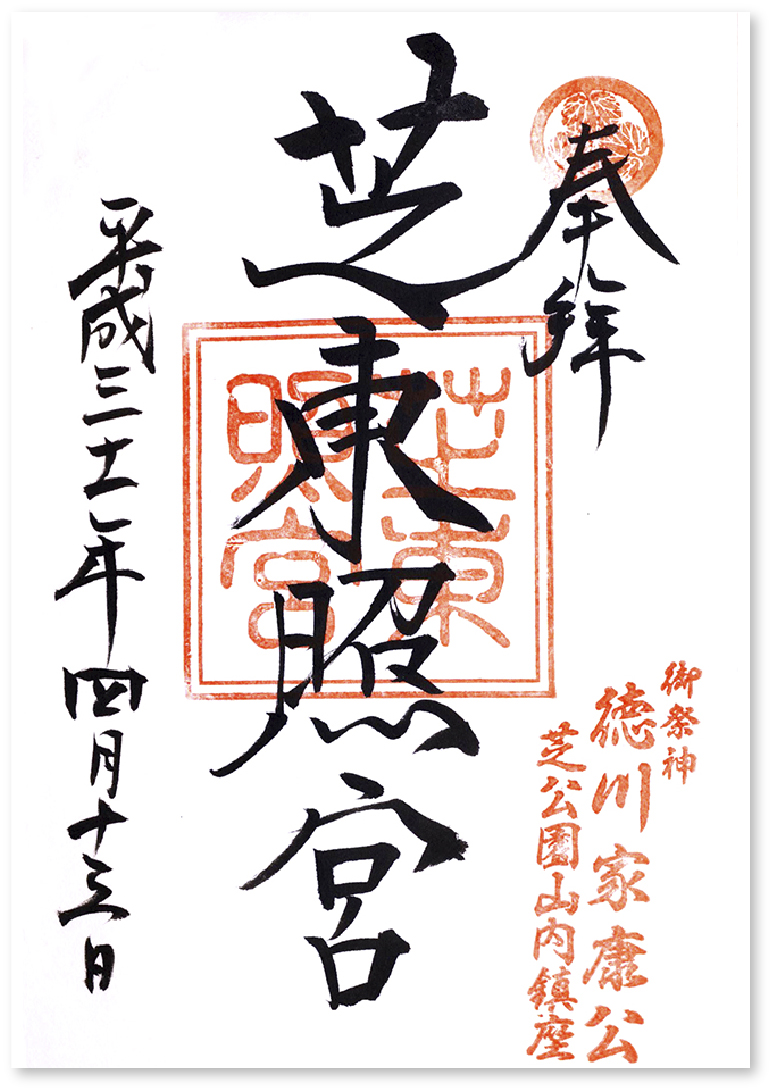 奉拝
御祭神
徳川家康公
芝公園山内鎮座
芝東照宮
芝東
照宮
平成三十一年四月十三日